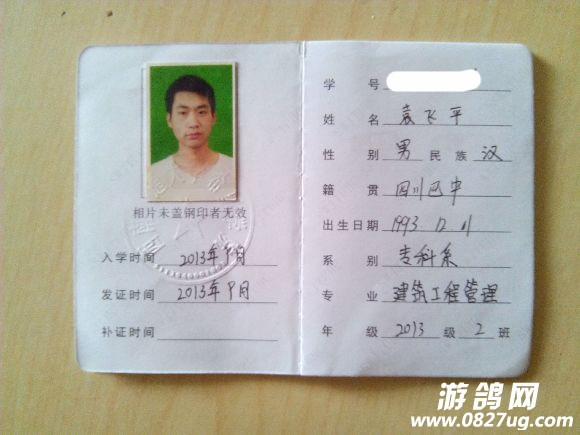 相片未盖钢印者无效
入学时间 2013年9月
发证时间 2013年9月
补证时间
学 号
姓 名 袁飞平
性 别 男 民 族 汉
籍 贯 四川巴中
出生日期 1993.12.11
系 别 专科系
专 业 建筑工程管理
年 级 2013 级 2 班
游鸽网
www.0827ug.com